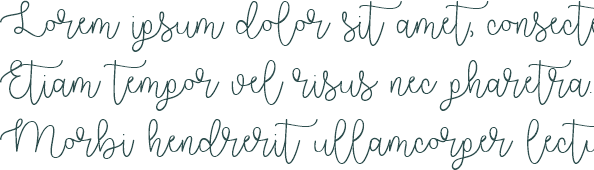 Lorem ipsum dolor sit amet, consecte
Etiam tempor vel risus nec pharetra.
Morbi hendrerit ullamcorper lectu